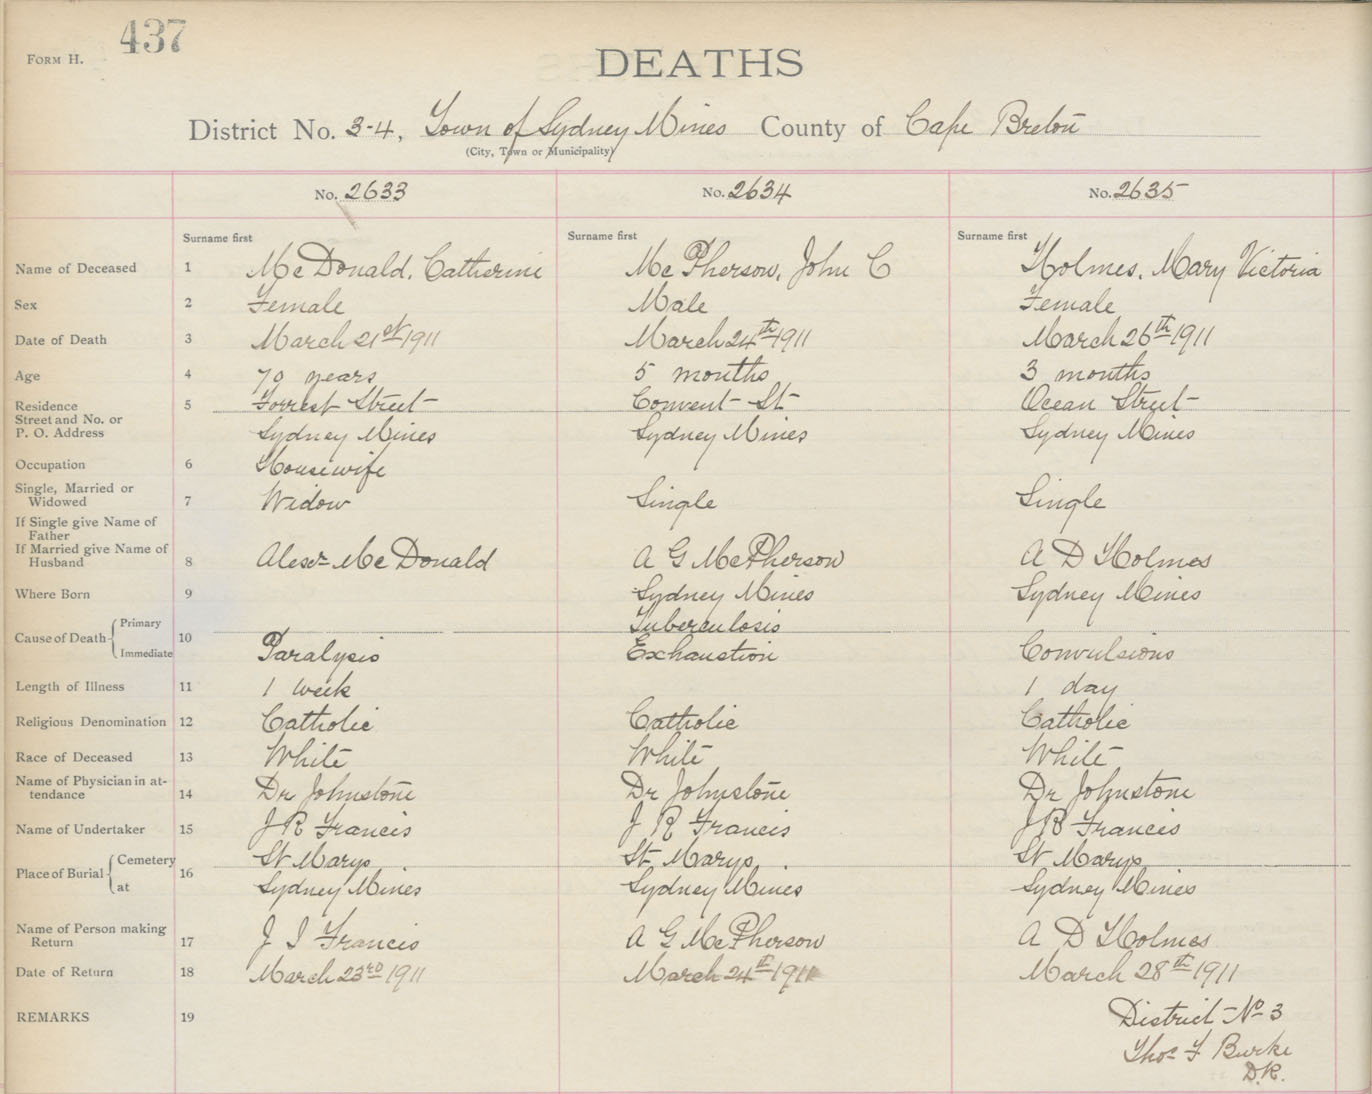 437
FORM H.
DEATHS
District No. 3-4, Town of Sydney Mines County of Cape Breton
(City, Town or Municipality)
No. 2633 No. 2634 No. 2635
Surname first Surname first Surname first
Name of Deceased 1 McDonald, Catherine McPherson, John C Holmes, Mary Victoria
Sex 2 Female Male Female
Date of Death 3 March 21st 1911 March 24th 1911 March 26th 1911
Age 4 70 years 5 months 3 months
Residence 5 Forrest Street Convent St Ocean Street
Street and No. or
P. O. Address Sydney Mines Sydney Mines Sydney Mines
Occupation 6 Housewife
Single, Married or
Widowed 7 Widow Single Single
If Single give Name of
Father
If Married give Name of
Husband 8 Alexr McDonald A G McPherson A D Holmes
Where Born 9 Sydney Mines Sydney Mines
Primary Tuberculosis
Cause of Death 10
Immediate Paralysis Exhaustion Convulsions
Length of Illness 11 1 week 1 day
Religious Denomination 12 Catholic Catholic Catholic
Race of Deceased 13 White White White
Name of Physician in at-
tendance 14 Dr Johnstone Dr Johnstone Dr Johnstone
Name of Undertaker 15 J R Francis J R Francis J R Francis
Cemetery St Marys St Marys St Marys
Place of Burial 16
at Sydney Mines Sydney Mines Sydney Mines
Name of Person making
Return 17 J J Francis A G McPherson A D Holmes
Date of Return 18 March 23rd 1911 March 24th 1911 March 28th 1911
REMARKS 19 District No 3
Thos F Burke
D.R.